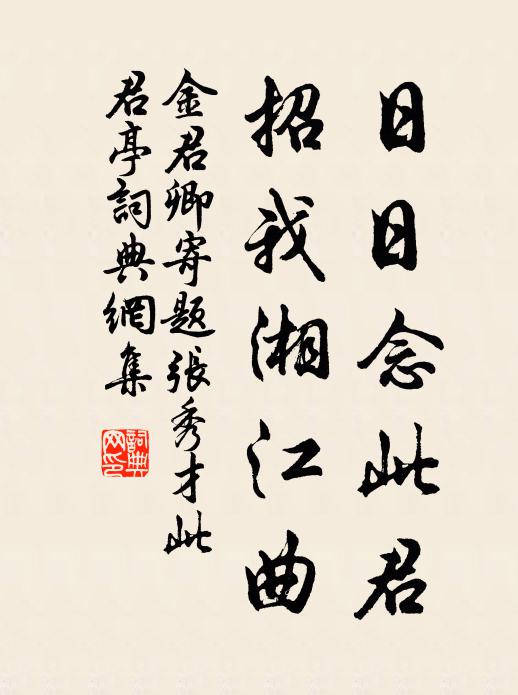 日日念此君
招我湘江曲
金君卿寄题張秀才此
君亭詞典網集
詞典
网印